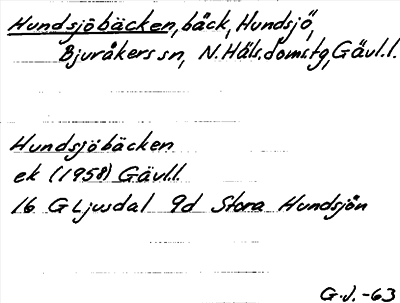 Hundsjöbäcken, bäck, Hundsjö,
Bjuråkers sn, N. Häls. doms.tg, Gävl.l.
Hundsjöbäcken
ek (1958) Gävl.l.
16 G Ljusdal 9d Stora Hundsjön
G.J. -63